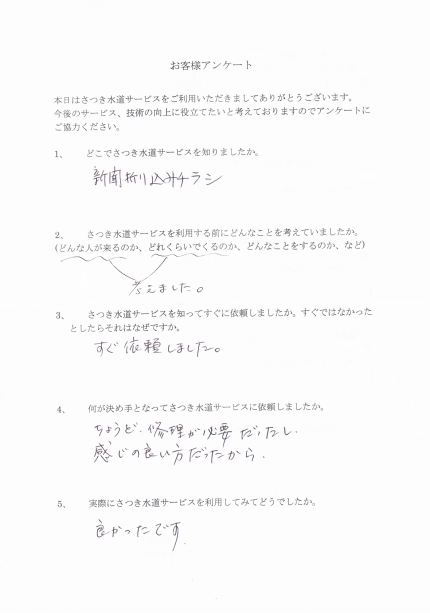 お客様アンケート
本日はさつき水道サービスをご利用いただきましてありがとうございます。
今後のサービス、技術の向上に役立てたいと考えておりますのでアンケートに
ご協力ください。
1、 どこでさつき水道サービスを知りましたか。
新聞折り込みチラシ
2、 さつき水道サービスを利用する前にどんなことを考えていましたか。
(どんな人が来るのか、どれくらいでくるのか、どんなことをするのか、など)
考えました。
3、 さつき水道サービスを知ってすぐに依頼しましたか。すぐではなかった
としたらそれはなぜですか。
すぐ依頼しました。
4、 何が決め手となってさつき水道サービスに依頼しましたか。
ちょうど、修理が必要だったし、
感じの良い方だったから。
5、 実際にさつき水道サービスを利用してみてどうでしたか。
良かったです。